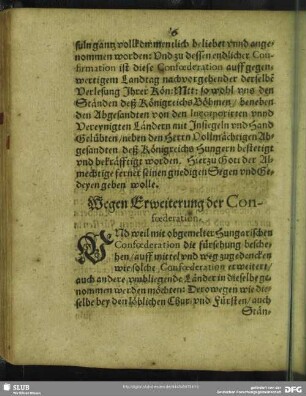 6
suln gantz vollkömmentlich beliebet vnnd ange-
nommen worden: Vnd zu dessen endlicher Con-
firmation ist diese Confœderation auff gegen-
wertigem Landtag nach vorgehender derselbē
Verlesung Ihrer Kön: Mtt: so wohl vns den
Ständen deß Königreichs Böhmen / beneben
den Abgesandten von den Incorporirten vnnd
Vereynigten Ländern mit Insiegeln vnd Hand
Gelübten / neben den Herrn Vollmächtigen Ab-
gesandten deß Königreichs Hungern bestetigt
vnd bekräfftigt worden. Hierzu Gott der All-
mechtige ferner seinen gnedigen Segen vnd Ge-
deyen geben wolle.
Wegen Erweiterung der Con-
fœderation.
VNd weil mit obgemelter Hungarischen
Confœderation die fürsehung besche-
hen / auff mittel vnd weg zugedencken
wie solche Confœderation erweitert /
auch andere vmbliegende Länder in dieselbe ge-
nommen werden möchten: Derowegen wie die-
selbe bey den löblichen Chur: vnd Fürsten / auch
Stän-
SLUB